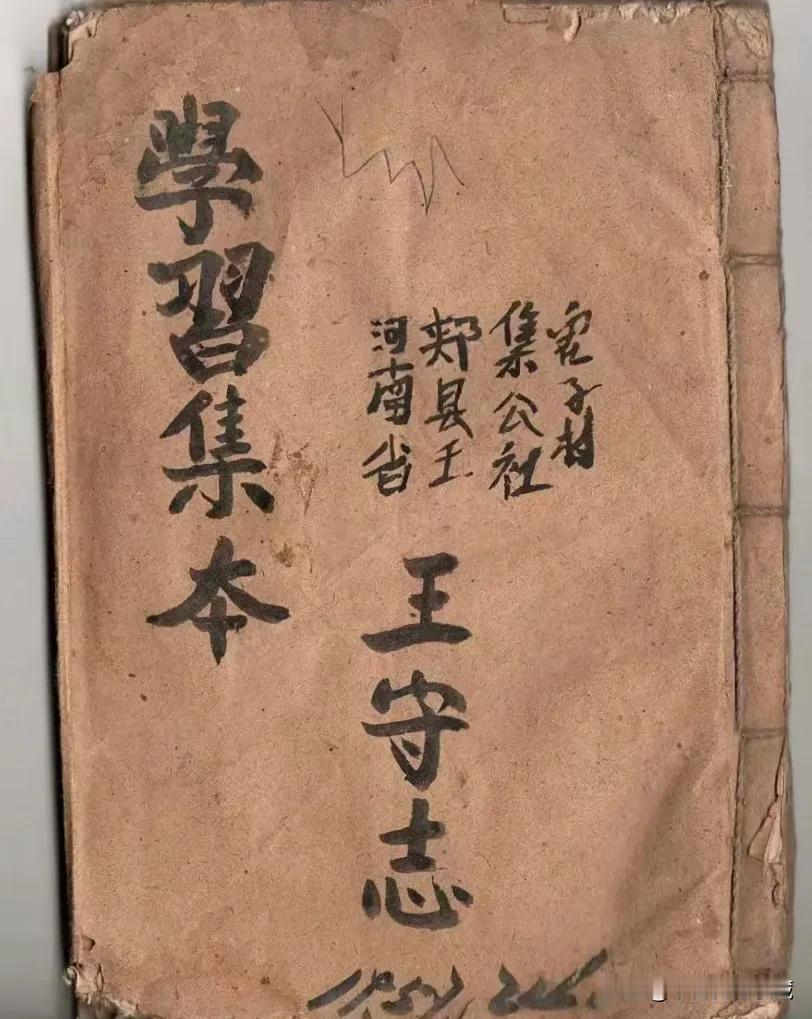 學習集本
河南省
郏县王
集公社
子村
王守志
195